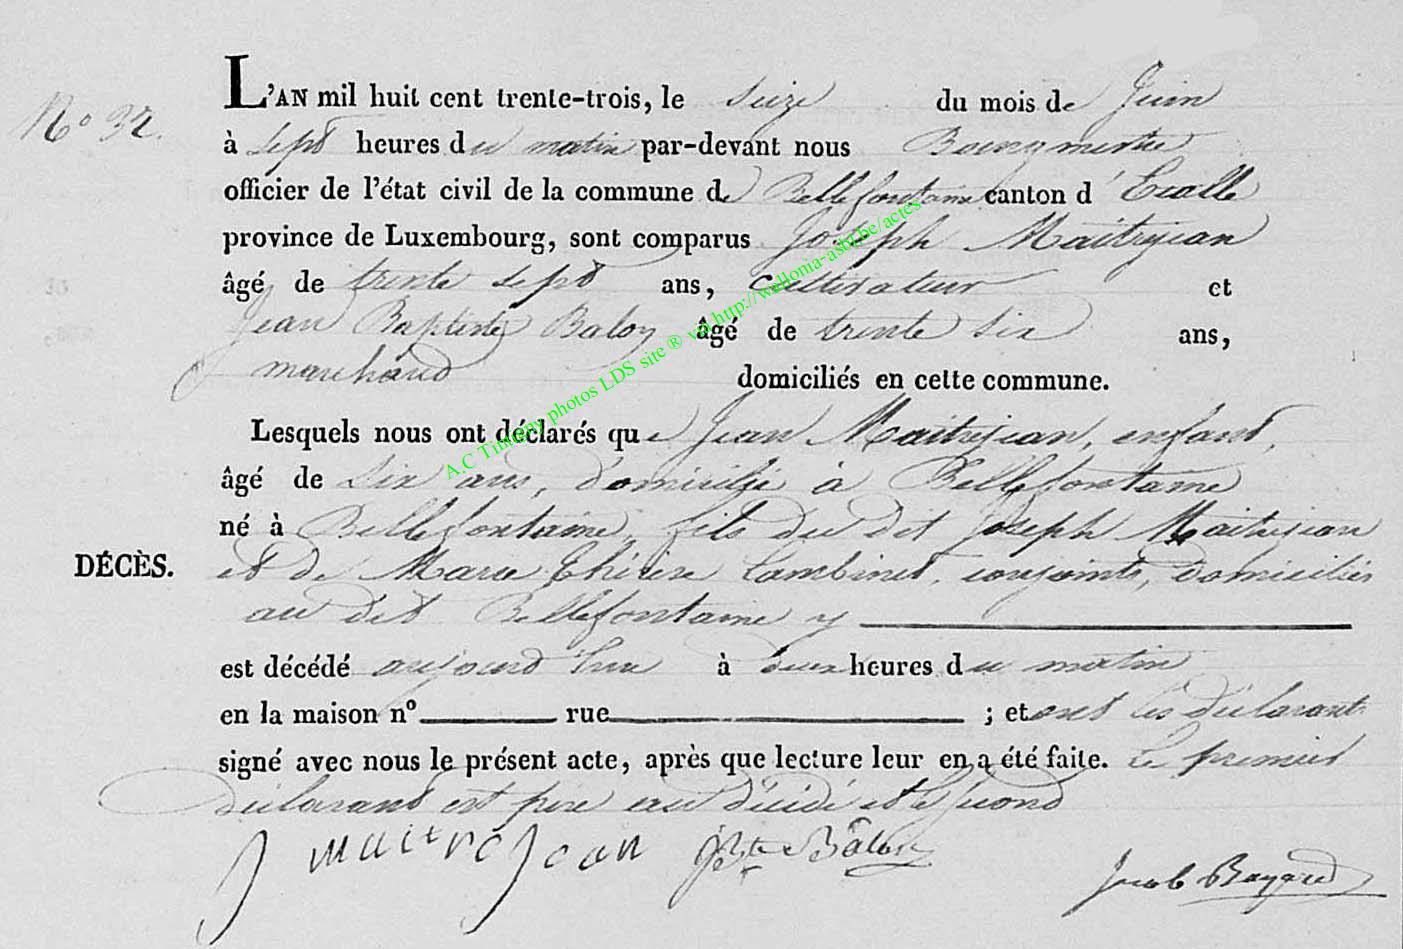 N° 32.
L'AN mil huit cent trente-trois, le seize du mois de Juin
à sept heures du matin par-devant nous Bourgmestre
officier de l'état civil de la commune de Bellefontaine canton d'Etalle
province de Luxembourg, sont comparus Joseph Maitrejean
âgé de trente sept ans, Cultivateur et
Jean Baptiste Baloy âgé de trente six ans,
marchand domiciliés en cette commune.
Lesquels nous ont déclarés que Jean Maitrejean, enfant,
âgé de six ans, domicilié à Bellefontaine
né à Bellefontaine, fils du dit Joseph Maitrejean
DÉCÈS.
et de Marie Thérèse Lambinet, conjoints, domiciliés
au dit Bellefontaine
est décédé aujourd'hui à deux heures du matin
en la maison n° rue ; et ont les déclarants
signé avec nous le présent acte, après que lecture leur en a été faite. Le premier
déclarant est père au décédé et le second
J maitre Jean Jn Bte Bâloy
Jacob Bayard
A.C Tintigny photos LDS site ® via http://wallonia-asbl.be/actes